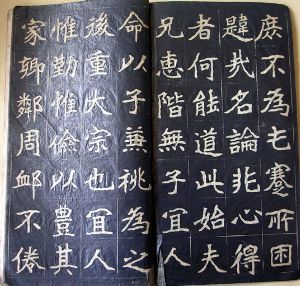 庶不為毛蹇所困
韙哉名論非心得
者何能道此始夫
兄惠階無子宜人
命以子兼祧為之
後重大宗也宜人
惟勤惟儉以豊其
家卹鄰周卹不倦